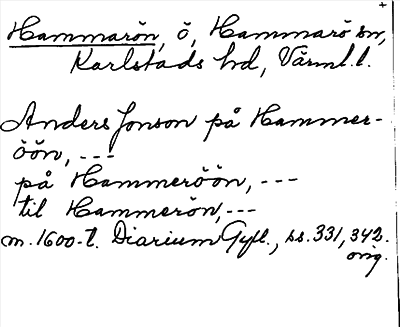 Hammarön, ö, Hammarö sn,
Karlstads hd, Värml. l.
Anders Jonson på Hammer-
öön, ---
på Hammeröön, ---
til Hammerön, ---
m. 1600-t. Diarium Gyll., ss. 331, 342.
orig.